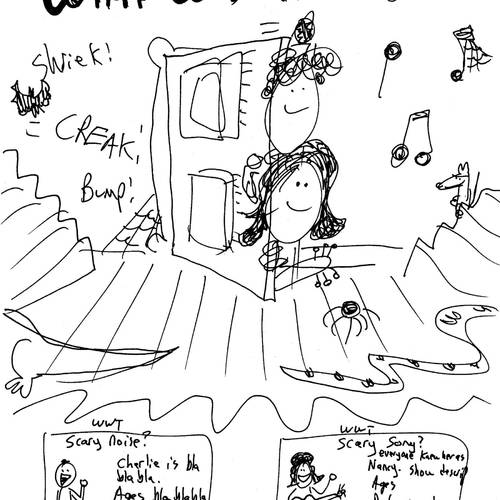 SWiEK!
CREAK!
BUMP!
WWT
SCARY NOISE?
Charlie is bla
bla bla.
Ages bla bla bla
WWT
SCARY SONG?
everyone
Nancy. Show
Ages